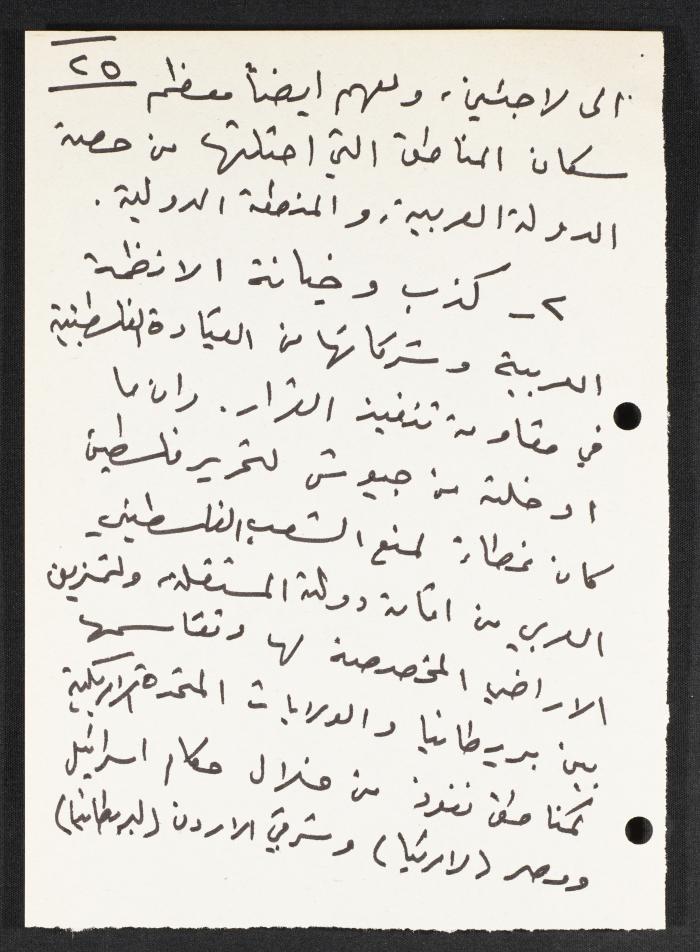 ٢٥
الى لاجئين، ومعهم ايضاً معظم
سكان المناطق التي احتلتها من حصة
الدولة العربية، والمنطقة الدولية.
٢ـ كذب وخيانة الانظمة
العربية وشركائها من القيادة الفلسطينية
في مقاومة تنفيذ القرار. وان ما
ادخلته من جيوش لتحرير فلسطين
كان غطاء لمنع الشعب الفلسطيني
العربي من اقامة دولته المستقلة ولتمزيق
الاراضي المخصصة لها وتقاسمها
بين بريطانيا والولايات المتحدة الامريكية
كمناطق نفوذ من خلال حكام اسرائيل
ومصر (لامريكا) وشرقي الاردن (لبريطانيا)